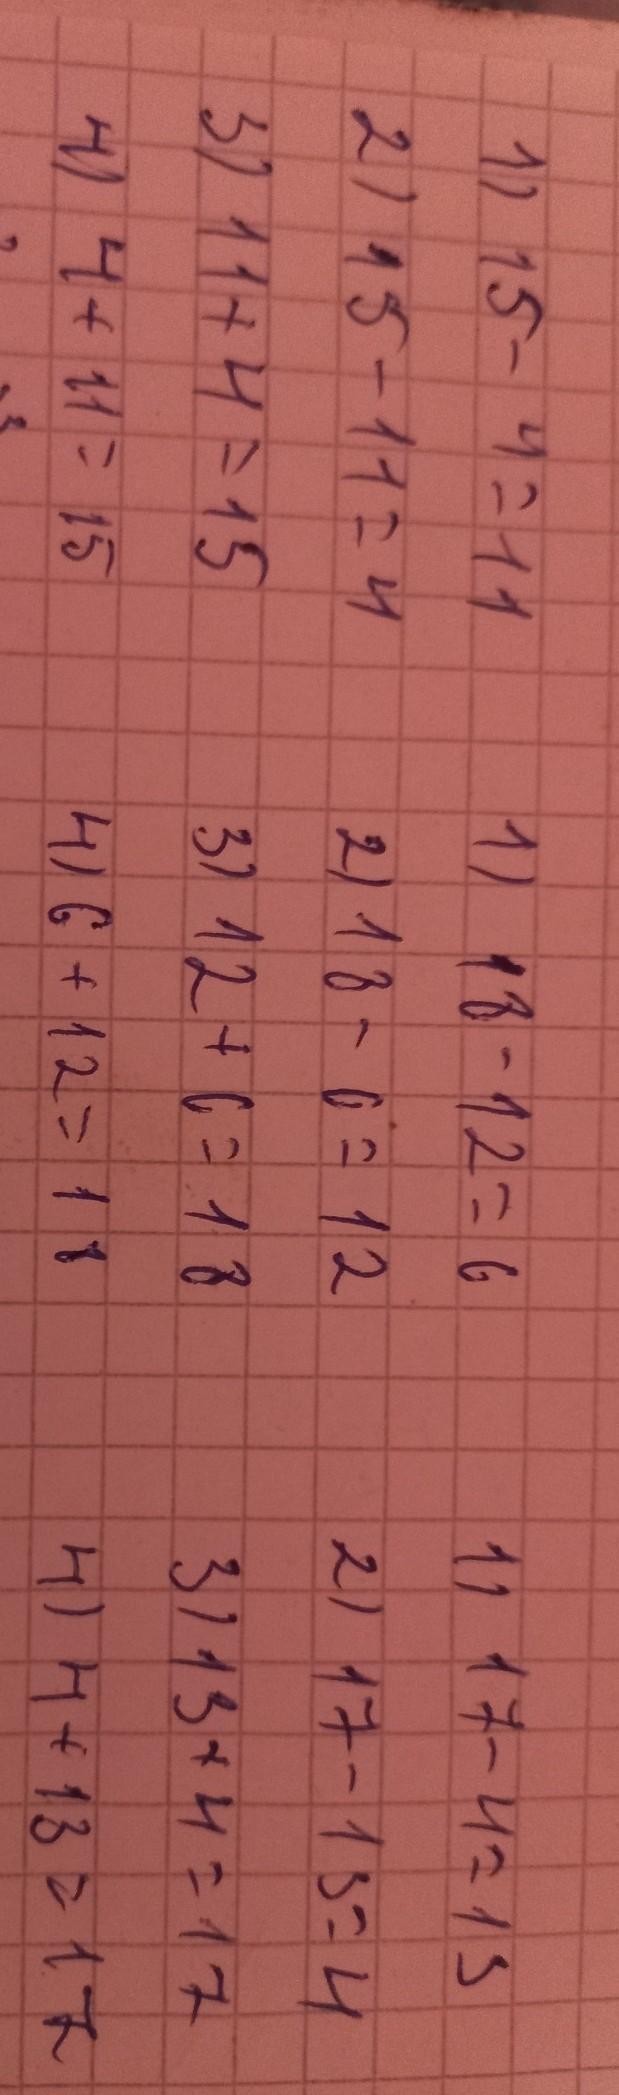 1) 15 - 4 = 11
2) 15 - 11 = 4
3) 11 + 4 = 15
4) 4 + 11 = 15
1) 18 - 12 = 6
2) 18 - 6 = 12
3) 12 + 6 = 18
4) 6 + 12 = 18
1) 17 - 4 = 13
2) 17 - 13 = 4
3) 13 + 4 = 17
4) 4 + 13 = 17